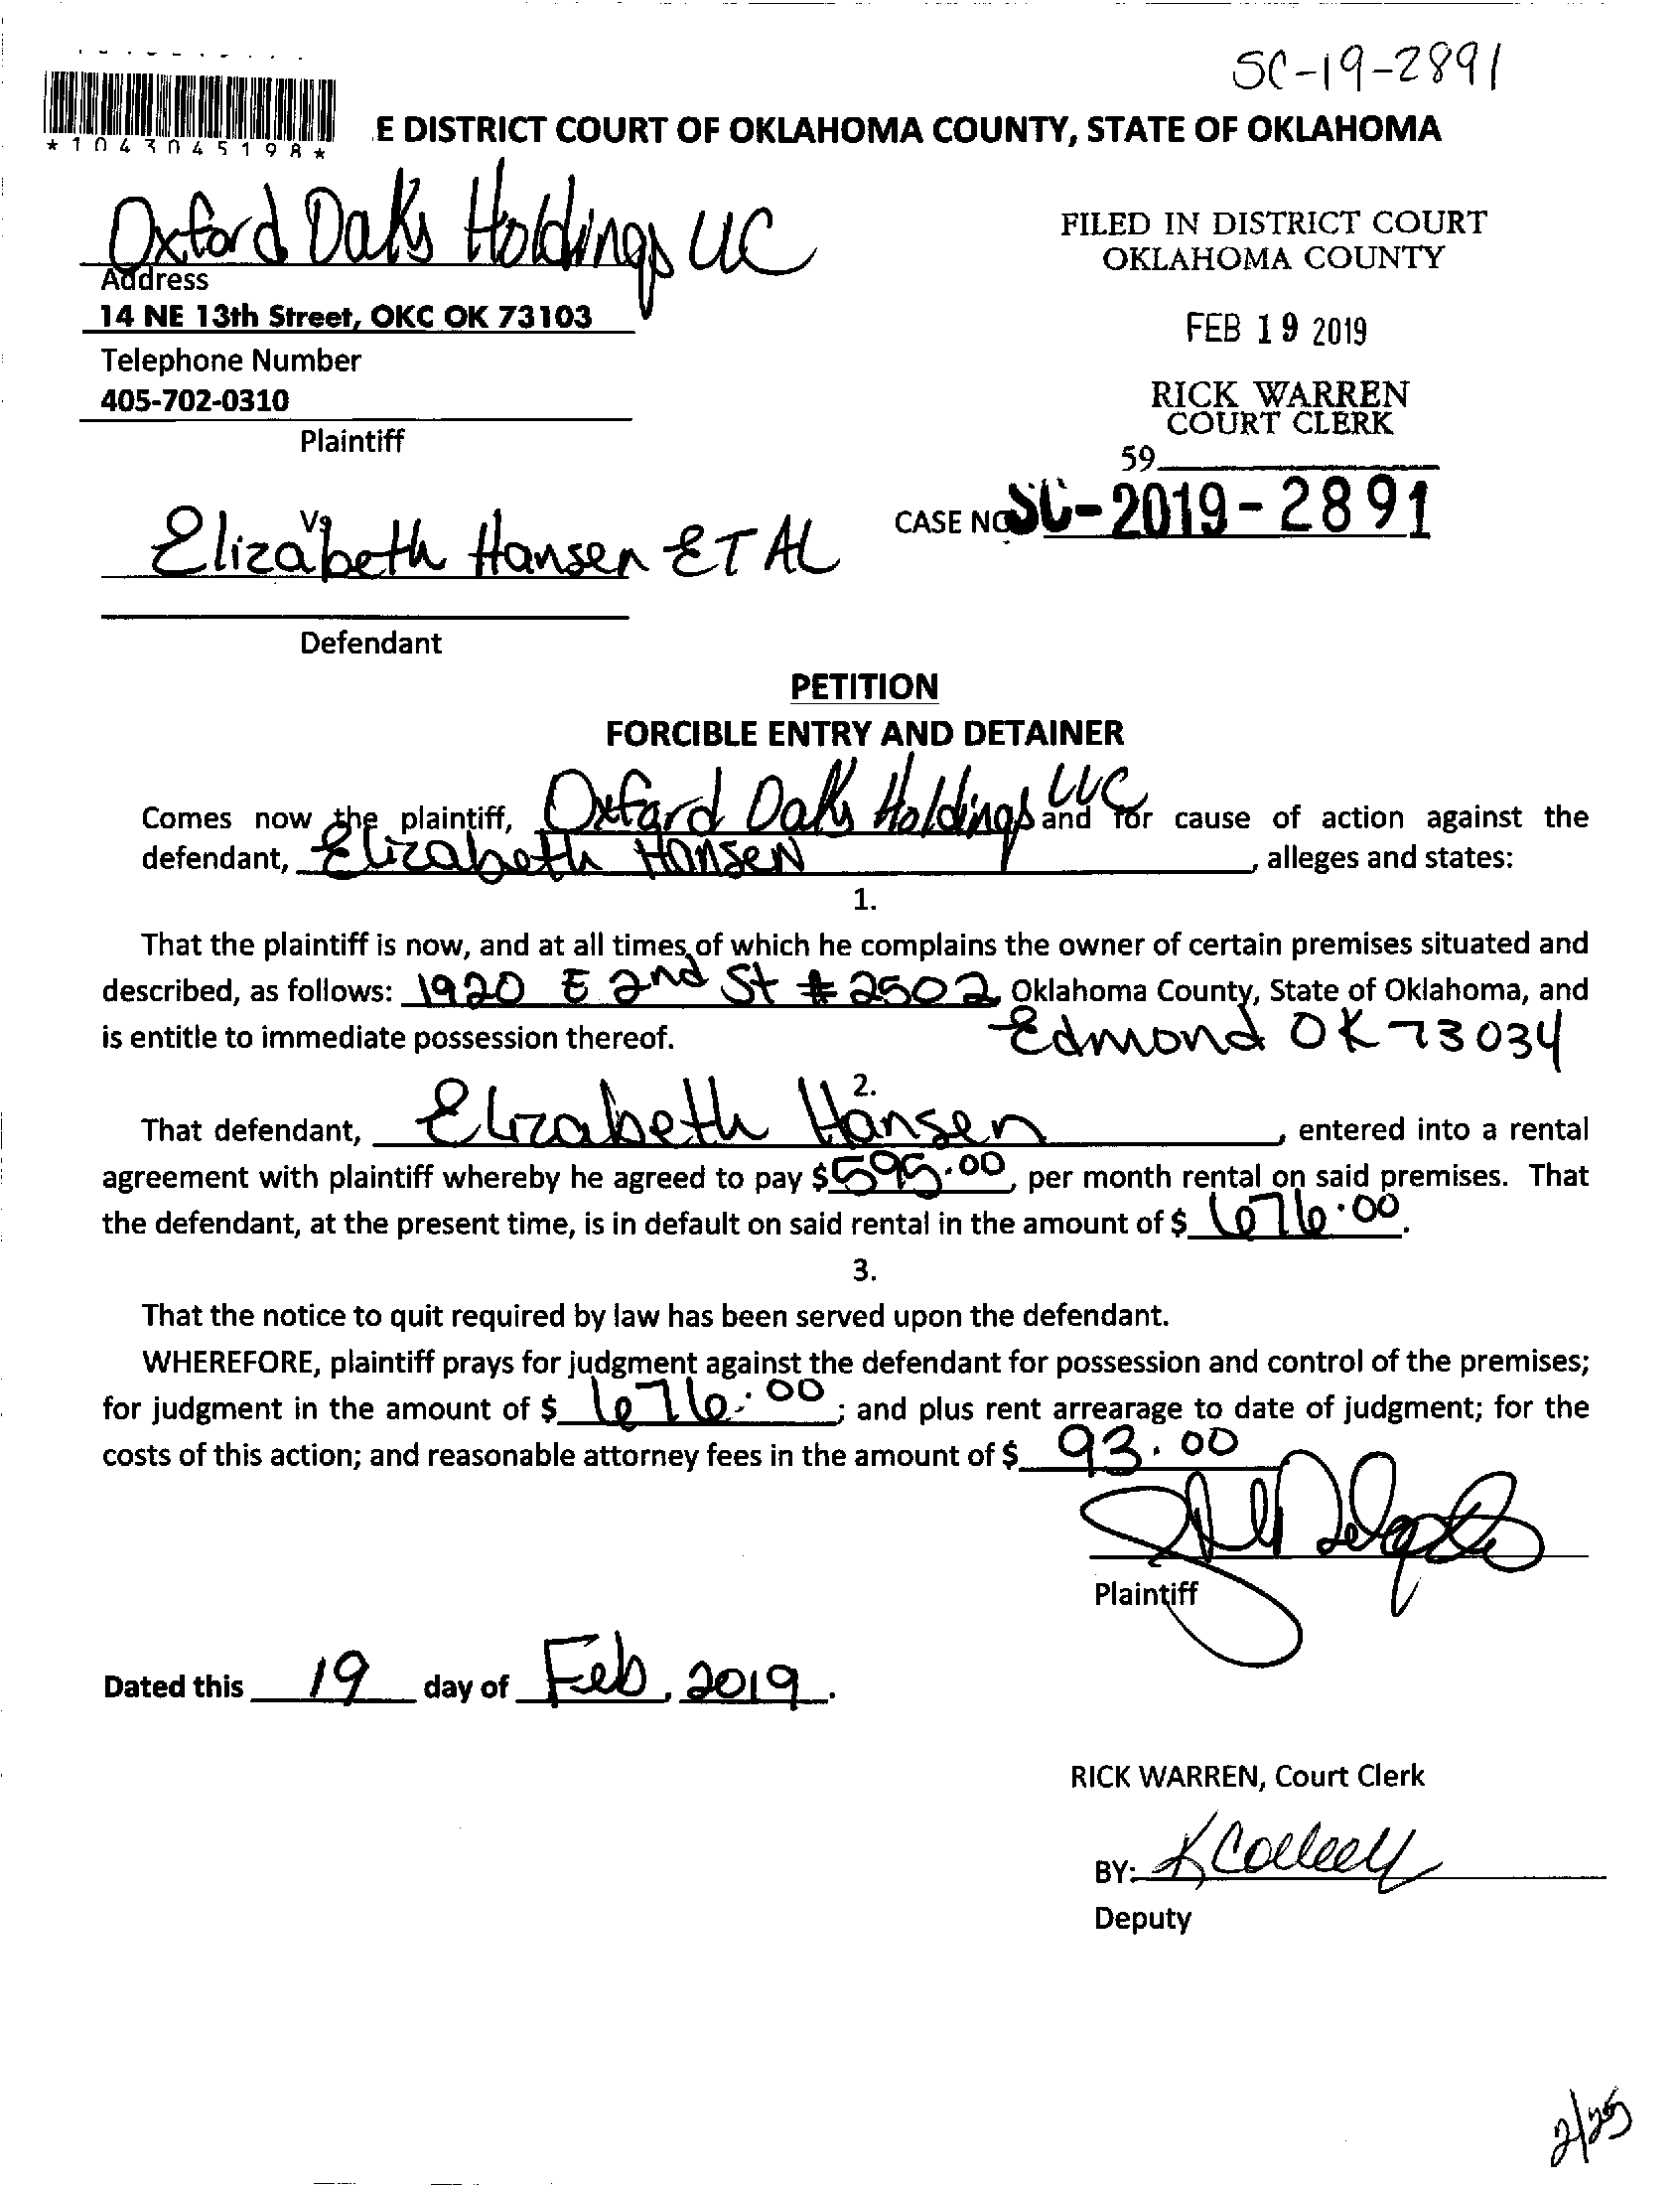 SC-19-2891
*1043045198*
E DISTRICT COURT OF OKLAHOMA COUNTY, STATE OF OKLAHOMA
Oxford Oaks Holdings LLC
Address
14 NE 13th Street, OKC OK 73103
Telephone Number
405-702-0310
Plaintiff
FILED IN DISTRICT COURT
OKLAHOMA COUNTY
FEB 19 2019
RICK WARREN
COURT CLERK
59
CASE NO SC-2019-2891
Vs
Elizabeth Hansen ET AL
Defendant
PETITION
FORCIBLE ENTRY AND DETAINER
Comes now the plaintiff, Oxford Oaks Holdings LLC and for cause of action against the
defendant, Elizabeth Hansen, alleges and states:
1.
That the plaintiff is now, and at all times of which he complains the owner of certain premises situated and
described, as follows: 1920 E 2nd St # 2502, Oklahoma County, State of Oklahoma, and
is entitle to immediate possession thereof. Edmond OK 73034
2.
That defendant, Elizabeth Hansen, entered into a rental
agreement with plaintiff whereby he agreed to pay $595.00, per month rental on said premises. That
the defendant, at the present time, is in default on said rental in the amount of $ 676.00.
3.
That the notice to quit required by law has been served upon the defendant.
WHEREFORE, plaintiff prays for judgment against the defendant for possession and control of the premises;
for judgment in the amount of $ 676.00; and plus rent arrearage to date of judgment; for the
costs of this action; and reasonable attorney fees in the amount of $ 93.00
Plaintiff
Dated this 19 day of Feb, 2019.
RICK WARREN, Court Clerk
BY:
Deputy
2/25